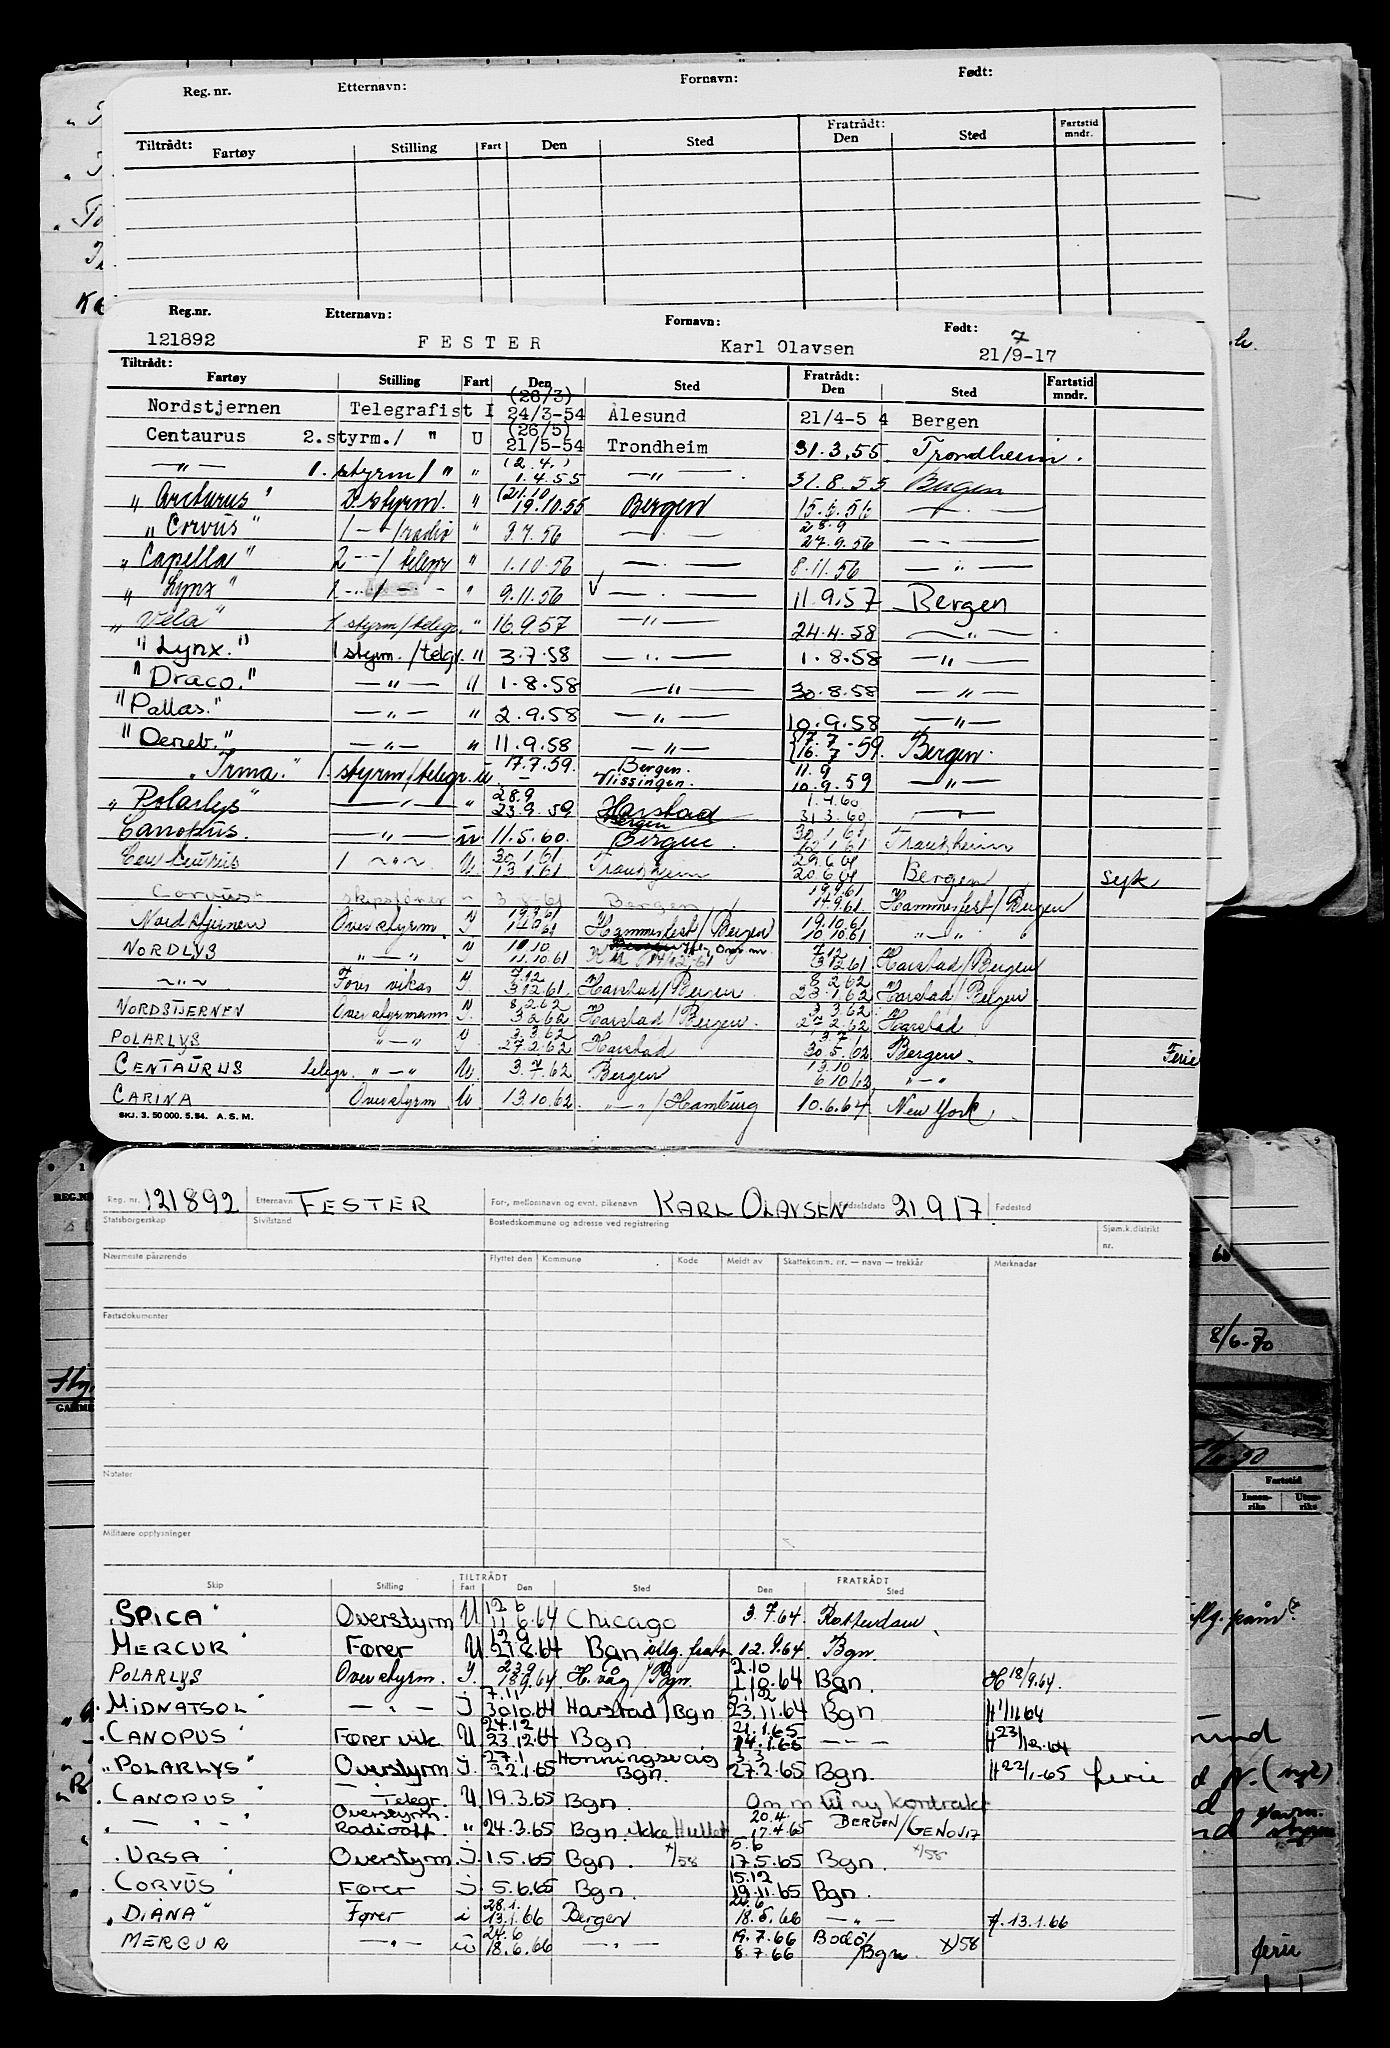 Reg. nr. Etternavn: Fornavn: Født:
Tiltrådt: Fratrådt:
Fartøy Stilling Fart Den Sted Den Sted Fartstid mndr.
Reg.nr. Etternavn: Fornavn: Født:
121892 FESTER Karl Olavsen 21/9-17
7
Tiltrådt: Fratrådt:
Fartøy Stilling Fart Den Sted Den Sted Fartstid mndr.
Nordstjernen Telegrafist I (26/3) 24/3-54 Ålesund 21/4-5 4 Bergen
Centaurus 2.styrm./ " U (26/5) 21/5-54 Trondheim 31.3.55 Trondheim.
—"— 1. styrm/ " " (2.4.) 1.4.55 —"— 31.8.55 Bergen
"Arcturus" 2. styrm. " (21.10 19.10.55 Bergen 15.5.56 —"—
"Corvus" 1 -"-/radio " 9.7.56 —"— 28.9 27.9.56 —"—
"Capella" 2 -"-/ telegr " 1.10.56 —"— 8.11.56 —"—
"Lynx" 1 -"- " 9.11.56 —"— 11.9.57 Bergen
"Vela" 1 styrm/telegr. " 16.9.57 —"— 24.4.58 —"—
"Lynx." 1 styrm. /telgr. " 3.7.58 —"— 1.8.58 —"—
"Draco." —"— " 1.8.58 —"— 30.8.58 —"—
"Pallas." —"— " 2.9.58 —"— 10.9.58 —"—
"Deneb." —"— " 11.9.58 —"— 17.7 16.7-59. Bergen.
"Irma." 1. styrm/telegr. u 17.7.59. Bergen. Vlissingen. 11.9 10.9.59 —"—
"Polarlys" —"— " 28.9 23.9.59 Harstad Bergen 1.4.60 31.3.60 —"—
Canopus. —"— u. 11.5.60. Bergen. 30.1.61 12.1.61 Trondheim
Centaurus 1 —"— U. 30.1.61 13.1.61 Trondheim 29.6.61 20.6.61 Bergen syk
Corvus skipsfører " 3.8.61 Bergen 19.9.61 17.9.61 Hammerfest/Bergen
Nordstjernen Overstyrm. I 19.9.61 Hammerfest/Bergen 19.10.61 10.10.61 —"—
NORDLYS —"— I 11.10.61 7.12 3.12.61 Harstad/Bergen
—"— Fører vikar I. 7.12 3.12.61 Harstad/Bergen 8.2.62 23.1.62 Harstad/Bergen
NORDSTJERNEN Overstyrmann I. 8.2.62 3.2.62 Harstad/Bergen. 3.3.62 27.2.62 Harstad
POLARLYS "—" I 3.3.62 27.2.62 Harstad 3.7. 30.5.62 Bergen. Ferie
CENTAURUS telegr. "—" U. 3.7.62 Bergen 13.10 6.10.62 "—"
CARINA Overstyrm U. 13.10.62. "—"/Hamburg 10.6.64 New York.
SKJ. 3. 50 000. 5. 54. A. S. M.
Reg. nr. 121892 Etternavn FESTER For-, mellomnavn og evnt. pikenavn KARL OLAVSEN Fødselsdato 21.9.17. Fødested
Statsborgerskap Sivilstand Bostedskommune og adresse ved registrering Sjøm.k.distrikt nr.
Nærmeste pårørende Flyttet den Kommune Kode Meldt av Skattekomm. nr. — navn — trekkår Merknader
Fartsdokumenter
Notater
Militære opplysninger
TILTRÅDT FRATRÅDT
Skip Stilling Fart Den Sted Den Sted
"SPICA" Overstyrm U 12.6 11.6.64 Chicago 3.7.64. Rotterdam.
MERCUR" Fører U 12.9 27.8.64 Bgn 12.9.64 Bgn.
POLARLYS Overstyrm. I. 23.9 18.9.64 H.våg/Bgn. 2.10 1.10.64 Bgn. H 18/9.64.
MIDNATSOL" —"— j 7.11 30.10.64 Harstad/Bgn 5.12 23.11.64 Bgn H 1/11.64
"CANOPUS" Fører vik. U 24.12 23.12.64 Bgn. 21.1.65 14.1.65 —"— H 23/12.64
"POLARLYS" Overstyrm j. 27.1 22.1.65 Honningsvåg Bgn. 3.3 27.2.65 Bgn. H 22/1-65 ferie
"CANOPUS —"— Telegr. U. 19.3.65 Bgn. Om m til ny kontrakt
—"— Overstyrm. Radiooff. " 24.3.65 Bgn. ikke Hullet 20.4. 17.4.65 BERGEN/GENOVA
"URSA" Overstyrm. j. 1.5.65 Bgn. x/58 5.6 17.5.65 Bgn. x/58
"CORVUS" Fører j. 5.6.65 Bgn. 15.12 19.11.65 Bgn.
"DIANA" Fører i 28.1. 13.1.66 Bergen 24.6 18.6.66 —"— 13.1.66
MERCUR —"— u 24.6 18.6.66 —"— 19.7.66 8.7.66 Bodø/ /Bgn. x/58
8/6-70
Fartstid
Innen-riks Uten-riks
ferie